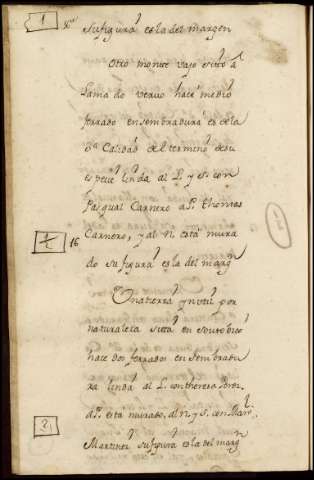 1
su figura es la del margen
Otro monte vajo sito a
Lama do vervo hace medio
ferrado en sembradura es de la
3ª Calidad del termino de su
especie linda al L. y S. con
Pasqual Carnero a P. thomas
Carnero, y al N. està mura
do su figura es la del marg.n
1/2
16
1/2
Una tierra ynutil por
naturaleza sita en souto
hace dos ferrados en sembradu
ra linda al L. con theresa
a P. està murado, al N. y S. con
Martinez su figura es la del marg.n
2